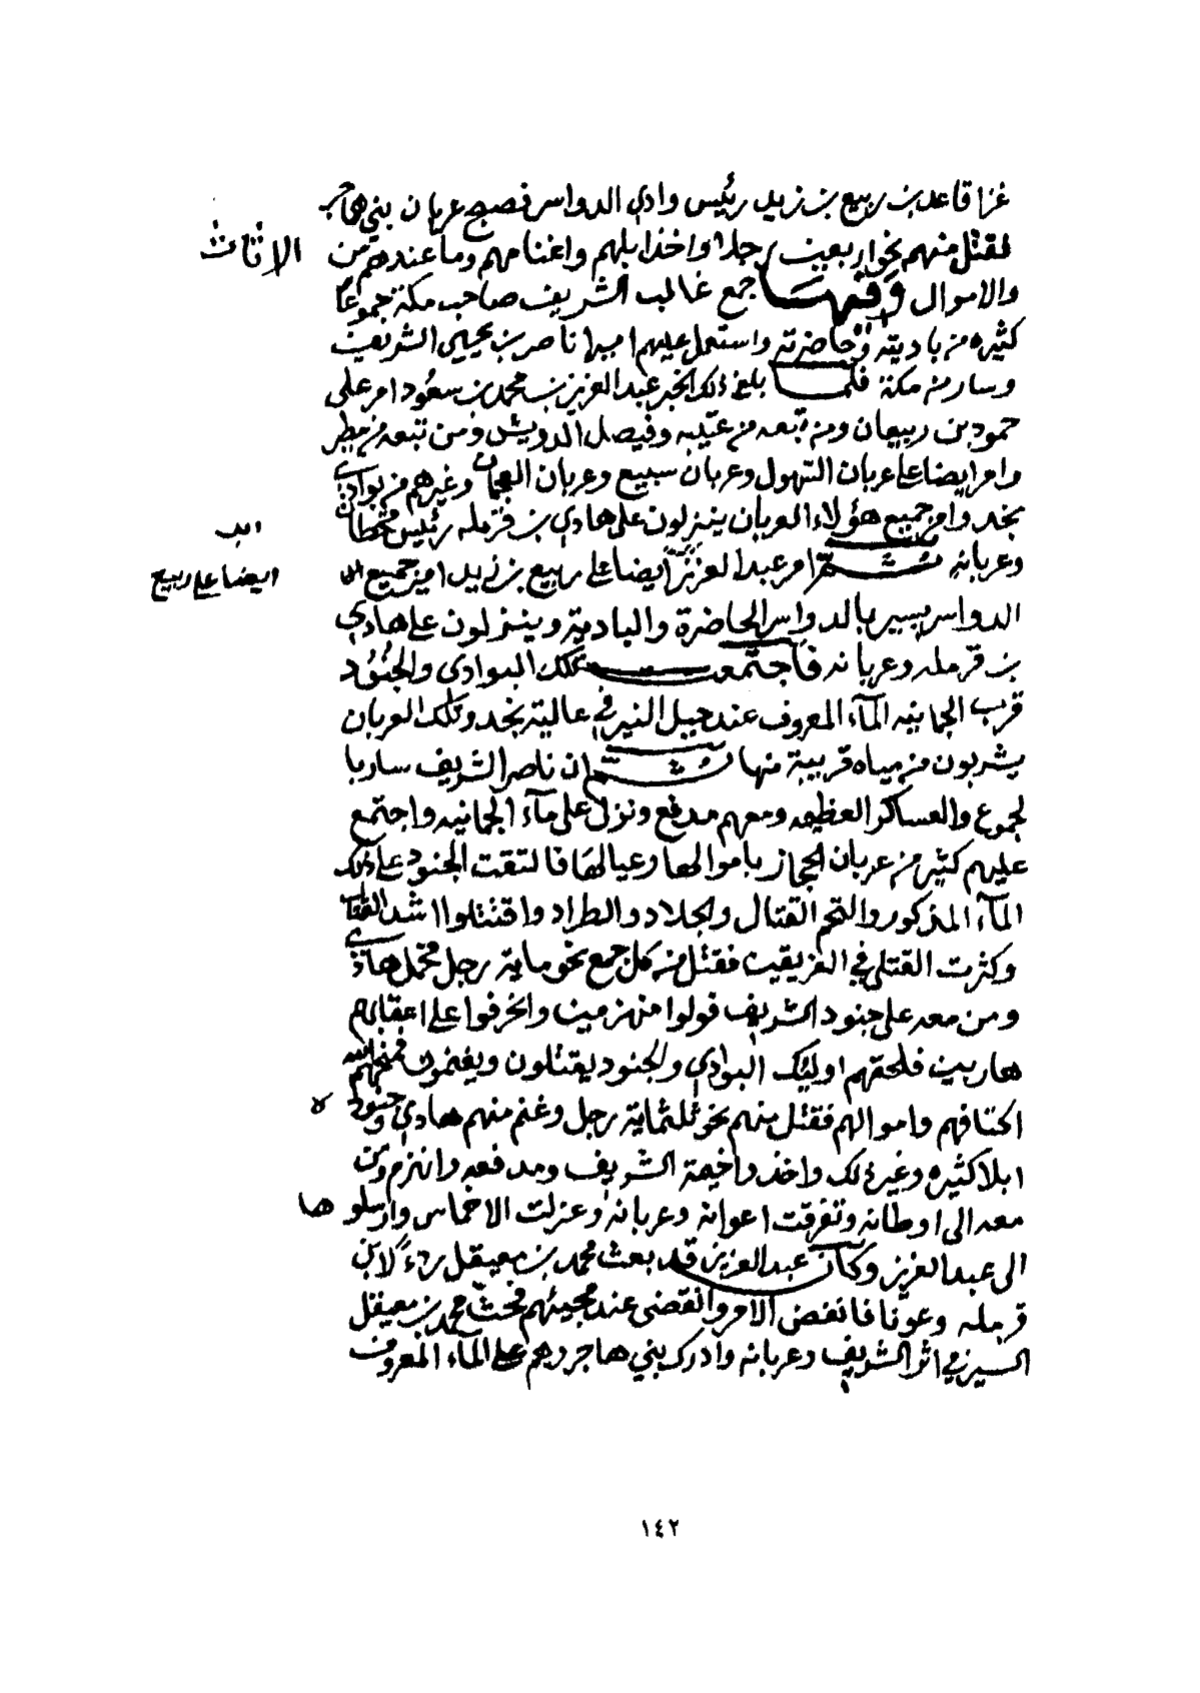 غزا قاعد بن ربيع بن زيد رئيس وادي الدواسر فصبح عربان بني هاجر
فقتل منهم نحو اربعين رجلا واخذ ابلهم واغنامهم وما عندهم من الاثاث
والاموال وفيها جمع غالب الشريف صاحب مكة جموعا
كثيره من باديته وحاضرته واستعمل عليهم اميرا ناصر بن يحيى الشريف
وسار من مكة فلما بلغ ذلك الخبر عبد العزيز بن محمد بن سعود امر على
حمود بن ربيعان ومن تبعه من عتيبه وفيصل الدويش ومن تبعه من مطير
وامر ايضا على عربان السهول وعربان سبيع وعربان العجمان وغيرهم من بوادي
نجد وامر جميع هؤلاء العربان ينزلون على هادي بن قرمله رئيس قحطان
وعربانه ثم امر عبد العزيز ايضا على ربيع بن زيد امير جميع
ايضا على ربيع
الدواسر يسير بالدواسر الحاضرة والبادية وينزلون على هادي
بن قرمله وعربانه فاجتمعت تلك البوادي والجنود
قرب الجمانيه المآء المعروف عند جبل النير في عالية نجد وتلك العربان
يشربون من مياه قريبة منها ثم ان ناصر الشريف سار با
لجموع والعساكر العظيمه ومعهم مدفع ونزل على مآء الجمانيه واجتمع
عليهم كثير من عربان الحجاز باموالها وعيالها فالتقت الجنود على ذلك
المآء المذكور والتحم القتال والجلاد والطراد واقتتلوا اشد القتال
وكثرت القتلى في الفريقين فقتل من كل جمع نحو ماية رجل فحمل هادي
ومن معه على جنود الشريف فولوا منهزمين وانحرفوا على اعقابهم
هاربين فلحقهم اوليك البوادي والجنود يقتلون ويغنمون فمنحهم الله
اكتافهم واموالهم فقتل منهم نحو ثلثماية رجل وغنم منهم هادي وجنوده
ابلا كثيره وغير ذلك واخذوا خيمة الشريف ومدفعه وانهزم ومن
معه الى اوطانه وتفرقت اعوانه وعربانه وعزلت الاخماس وارسلوها
الى عبد العزيز وكان عبد العزيز قد بعث محمد بن معيقل ردءا لابن
قرمله وعونا فانفض الامر وانقضى عند مجيئهم فحث محمد بن معيقل
السير في اثر الشريف وعربانه وادرك بني هاجر وهم على المآء المعروف
١٤٢